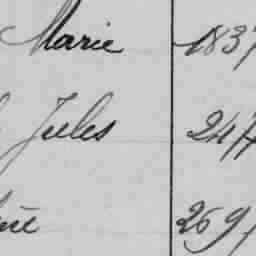 Marie 1837
Jules 247
269